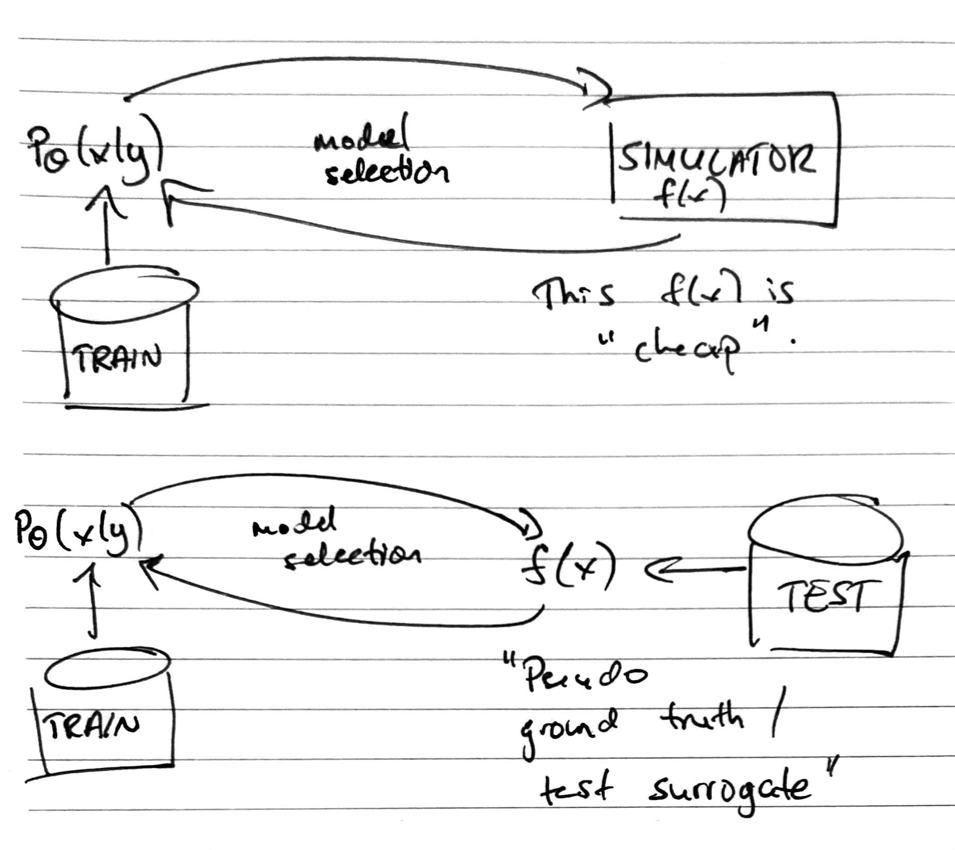 Pθ(x|y)
model
selection
SIMULATOR
f(x)
TRAIN
This f(x) is
"cheap".
Pθ(x|y)
model
selection
f(x)
TEST
TRAIN
"Pseudo
ground truth /
test surrogate"